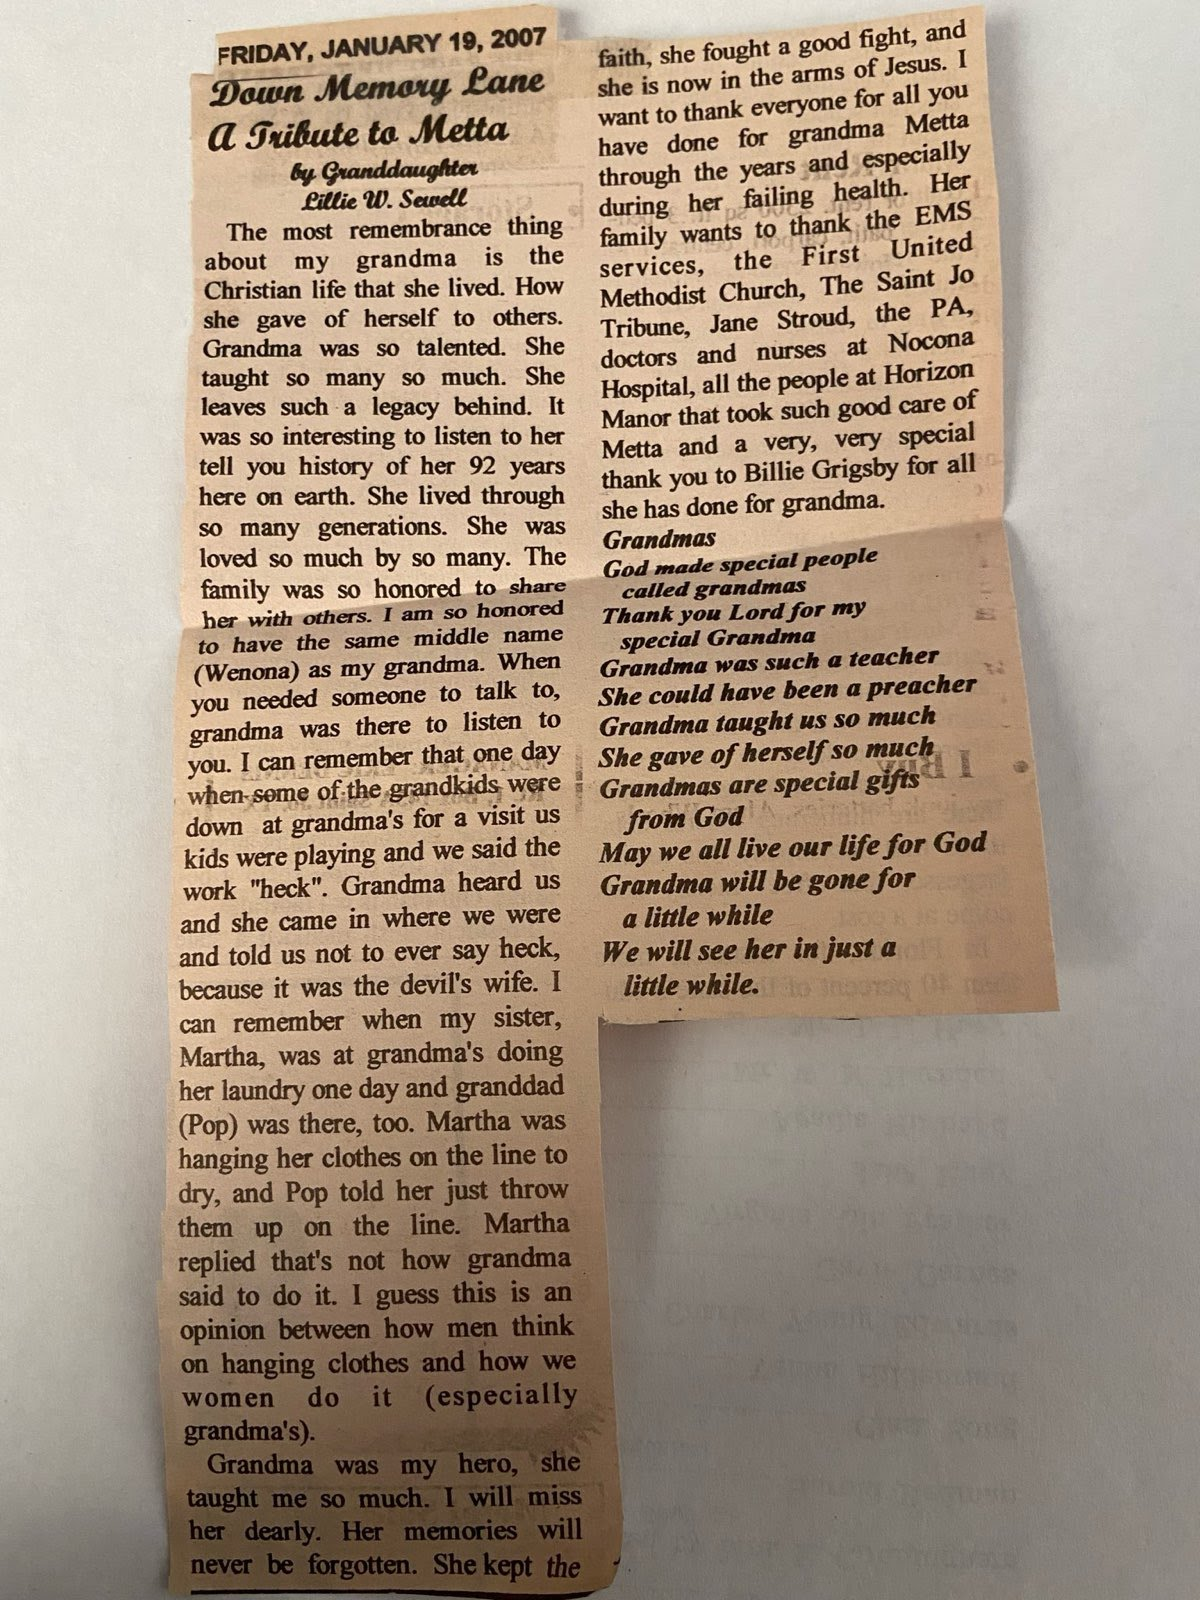 FRIDAY, JANUARY 19, 2007
Down Memory Lane
A Tribute to Metta
by Granddaughter
Lillie W. Sewell
The most remembrance thing
about my grandma is the
Christian life that she lived. How
she gave of herself to others.
Grandma was so talented. She
taught so many so much. She
leaves such a legacy behind. It
was so interesting to listen to her
tell you history of her 92 years
here on earth. She lived through
so many generations. She was
loved so much by so many. The
family was so honored to share
her with others. I am so honored
to have the same middle name
(Wenona) as my grandma. When
you needed someone to talk to,
grandma was there to listen to
you. I can remember that one day
when some of the grandkids were
down at grandma's for a visit us
kids were playing and we said the
work "heck". Grandma heard us
and she came in where we were
and told us not to ever say heck,
because it was the devil's wife. I
can remember when my sister,
Martha, was at grandma's doing
her laundry one day and granddad
(Pop) was there, too. Martha was
hanging her clothes on the line to
dry, and Pop told her just throw
them up on the line. Martha
replied that's not how grandma
said to do it. I guess this is an
opinion between how men think
on hanging clothes and how we
women do it (especially
grandma's).
Grandma was my hero, she
taught me so much. I will miss
her dearly. Her memories will
never be forgotten. She kept the
faith, she fought a good fight, and
she is now in the arms of Jesus. I
want to thank everyone for all you
have done for grandma Metta
through the years and especially
during her failing health. Her
family wants to thank the EMS
services, the First United
Methodist Church, The Saint Jo
Tribune, Jane Stroud, the PA,
doctors and nurses at Nocona
Hospital, all the people at Horizon
Manor that took such good care of
Metta and a very, very special
thank you to Billie Grigsby for all
she has done for grandma.
Grandmas
God made special people
called grandmas
Thank you Lord for my
special Grandma
Grandma was such a teacher
She could have been a preacher
Grandma taught us so much
She gave of herself so much
Grandmas are special gifts
from God
May we all live our life for God
Grandma will be gone for
a little while
We will see her in just a
little while.